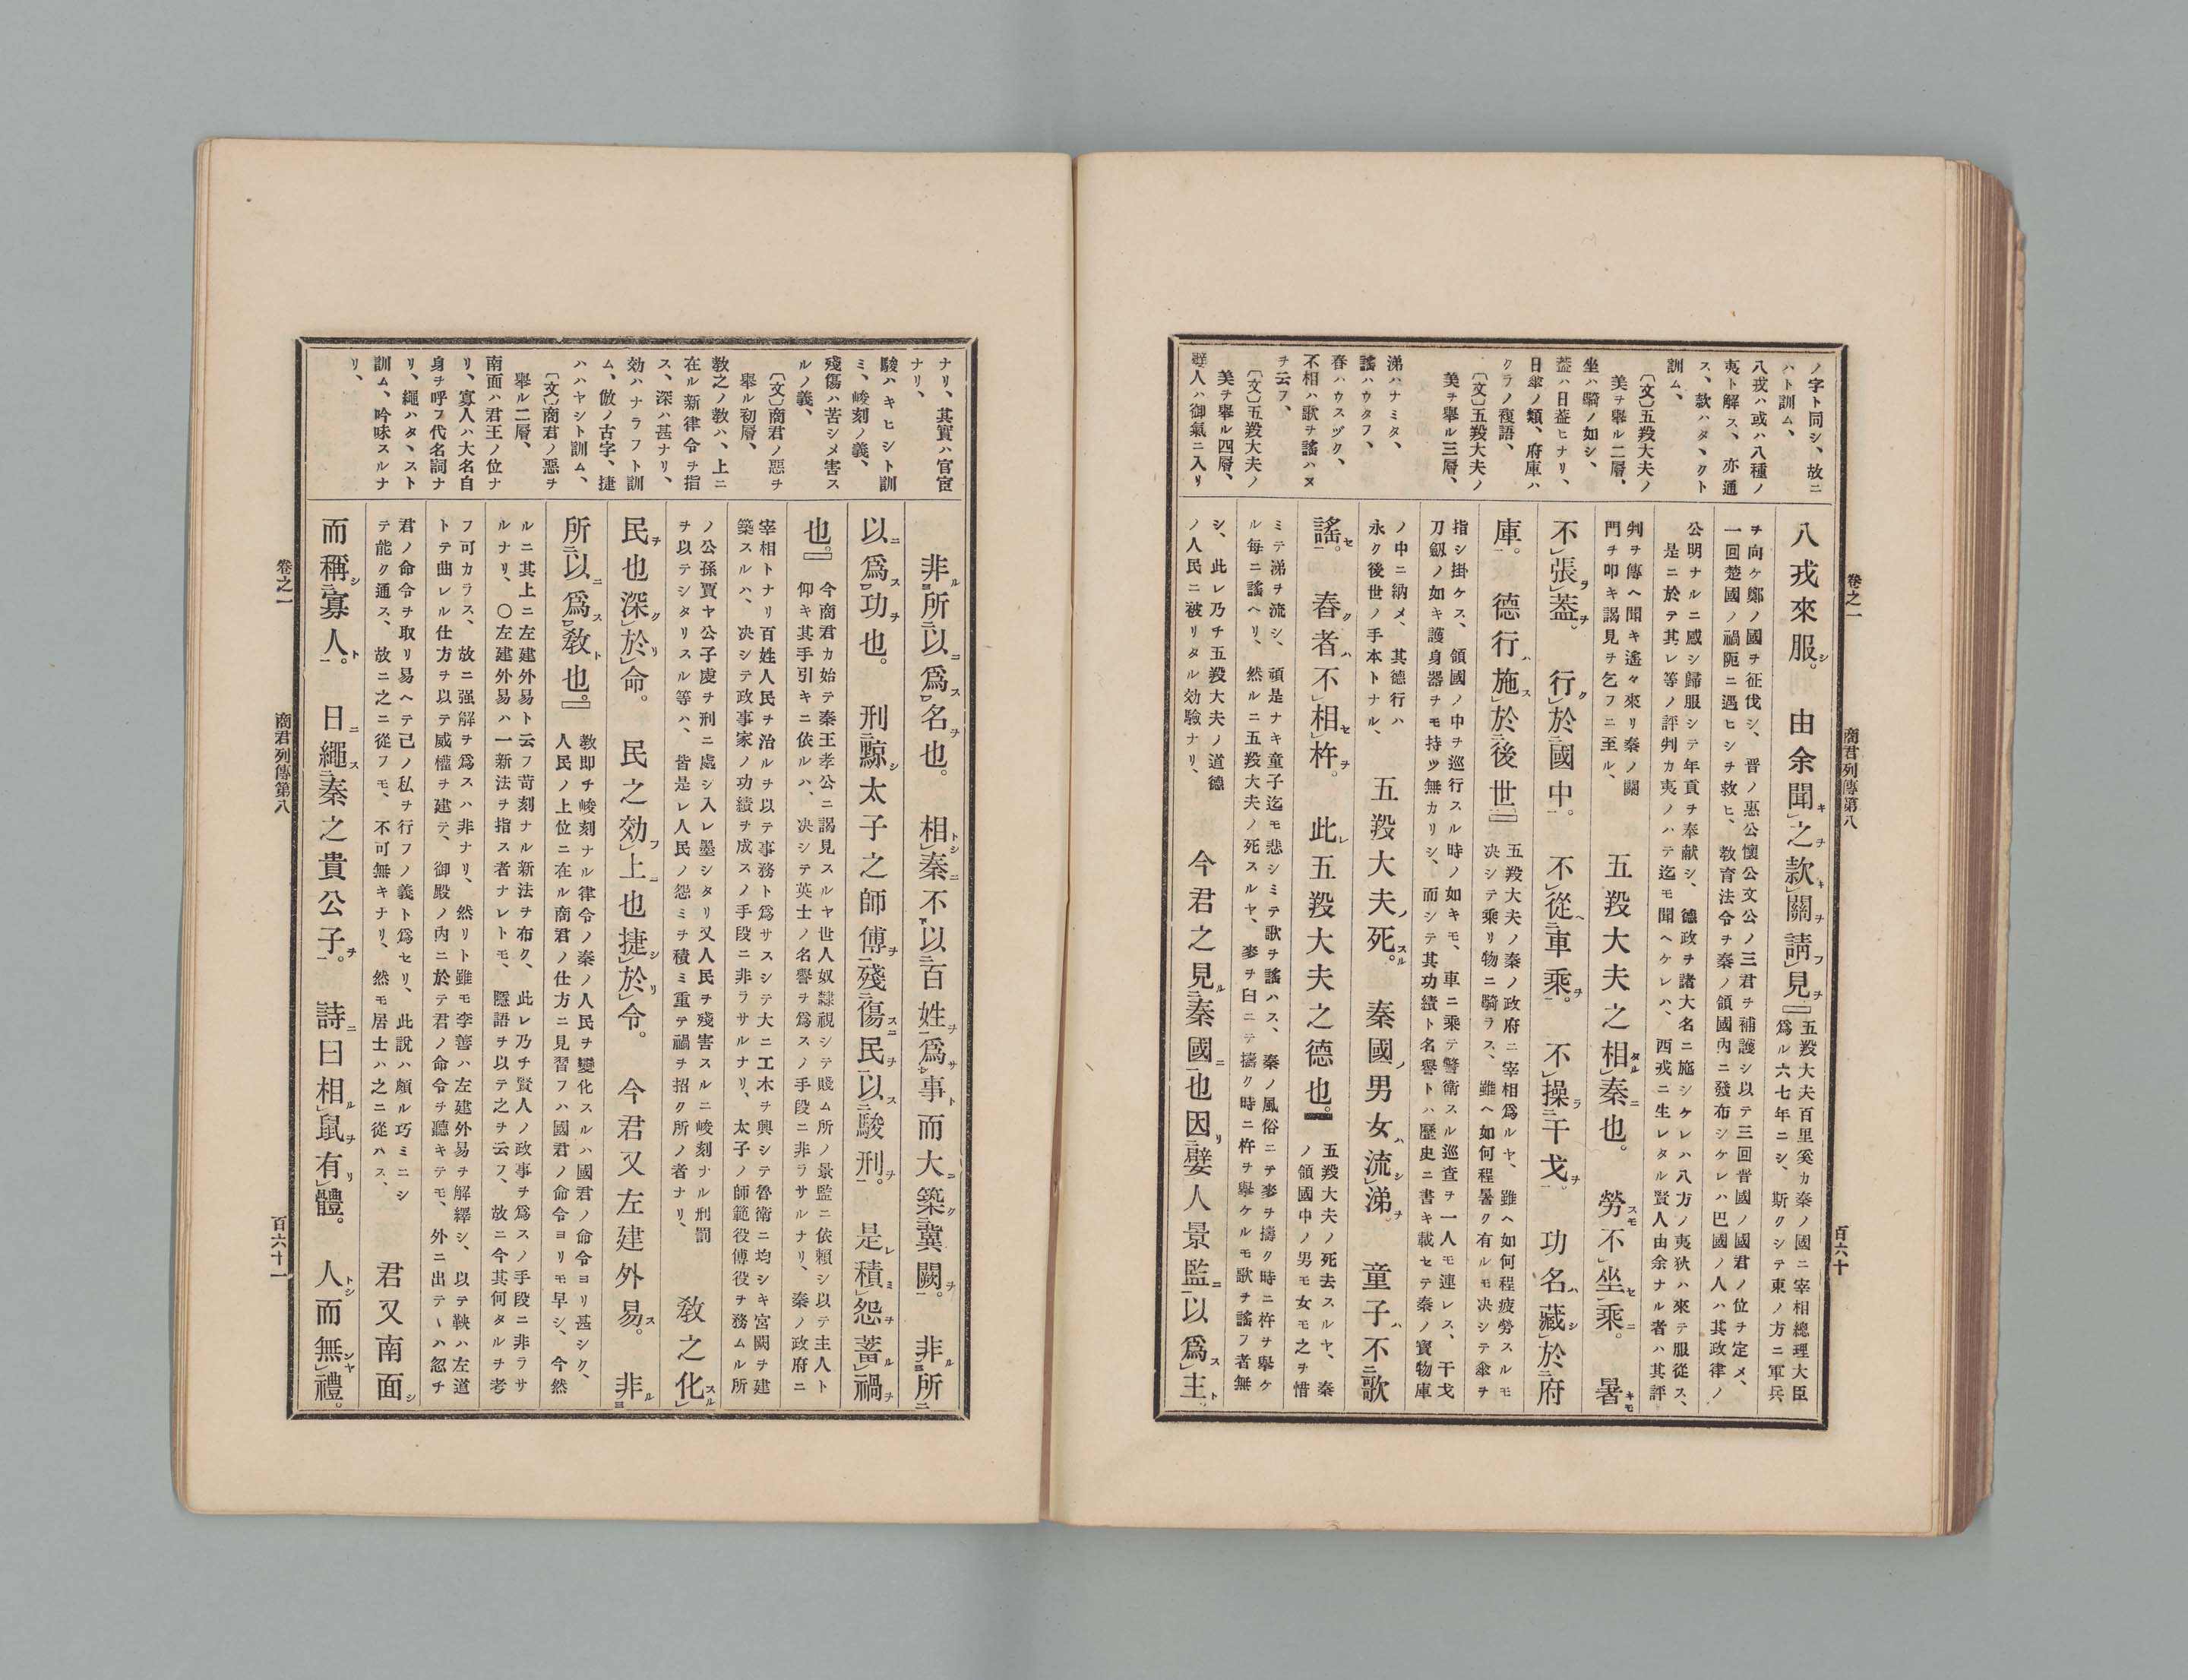 卷之一
商君列傳第八
百六十
ノ字ト同シ、故ニ
ハト訓ム、
八戎ハ或ハ八種ノ
夷ト解ス、亦通
ス、款ハタヽクト
訓ム、
〔文〕五羖大夫ノ
美ヲ擧ル二層、
坐ハ騎ノ如シ、
葢ハ日葢ヒナリ、
日傘ノ類、府庫ハ
クラノ複語、
〔文〕五羖大夫ノ
美ヲ擧ル三層、
涕ハナミタ、
謠ハウタフ、
舂ハウスヅク、
不相ハ歌ヲ謠ハヌ
ヲ云フ、
〔文〕五羖大夫ノ
美ヲ擧ル四層、
嬖人ハ御氣ニ入リ
八戎來服。シ 由余聞キ之ヲ款キ關ヲ請フ見ヲ
五羖大夫百里奚カ秦ノ國ニ宰相總理大臣
爲ル六七年ニシ、斯クシテ東ノ方ニ軍兵
ヲ向ケ鄭ノ國ヲ征伐シ、晋ノ惠公懷公文公ノ三君ヲ補護シ以テ三回晋國ノ國君ノ位ヲ定メ、
一回楚國ノ禍阨ニ遇ヒシヲ救ヒ、敎育法令ヲ秦ノ領國內ニ發布シケレハ巴國ノ人ハ其政律ノ
公明ナルニ感シ歸服シテ年貢ヲ奉献シ、德政ヲ諸大名ニ施シケレハ八方ノ夷狄ハ來テ服從ス、
是ニ於テ其レ等ノ評判カ夷ノハテ迄モ聞ヘケレハ、西戎ニ生レタル賢人由余ナル者ハ其評
判ヲ傳ヘ聞キ遙々來リ秦ノ關
門ヲ叩キ謁見ヲ乞フニ至ル、
五羖大夫之相タル秦ニ也。 勞スモ不坐セ乘ニ。 暑キモ
不張ヲ葢ヲ。 行ク於國中。 不從ヘ車乘ヲ。 不操ラ干戈ヲ。 功名ハ藏シ於府
庫。 德行ハ施ス於後世
五羖大夫ノ秦ノ政府ニ宰相爲ルヤ、雖ヘ如何程疲勞スルモ
决シテ乘リ物ニ騎ラス、雖ヘ如何程暑ク有ルモ决シテ傘ヲ
指シ掛ケス、領國ノ中ヲ巡行スル時ノ如キモ、車ニ乘テ警衛スル巡査ヲ一人モ連レス、干戈
刀劔ノ如キ護身器ヲモ持ツ無カリシ、而シテ其功績ト名譽トハ歷史ニ書キ載セテ秦ノ寶物庫
ノ中ニ納メ、其德行ハ
永ク後世ノ手本トナル、
五羖大夫ノ死スル。 秦國ノ男女ハ流シ涕ヲ。 童子ハ不歌
謠セ。 舂ク者ハ不相セ杵ヲ。 此レ五羖大夫之德也。
五羖大夫ノ死去スルヤ、秦
ノ領國中ノ男モ女モ之ヲ惜
ミテ涕ヲ流シ、頑是ナキ童子迄モ悲シミテ歌ヲ謠ハス、秦ノ風俗ニテ麥ヲ擣ク時ニ杵ヲ擧ケ
ル每ニ謠ヘリ、然ルニ五羖大夫ノ死スルヤ、麥ヲ臼ニテ擣ク時ニ杵ヲ擧ケルモ歌ヲ謠フ者無
シ、此レ乃チ五羖大夫ノ道德
ノ人民ニ被リタル効驗ナリ、
今君之見ル秦國ニ也因リ嬖人景監ニ以爲ス主ト。
ナリ、其實ハ官宦
ナリ、
駿ハキヒシト訓
ミ、峻刻ノ義、
殘傷ハ苦シメ害ス
ルノ義、
〔文〕商君ノ惡ヲ
擧ル初層、
敎之ノ敎ハ、上ニ
在ル新律令ヲ指
ス、深ハ甚ナリ、
効ハナラフト訓
ム、倣ノ古字、捷
ハハヤシト訓ム、
〔文〕商君ノ惡ヲ
擧ル二層、
南面ハ君王ノ位ナ
リ、寡人ハ大名自
身ヲ呼フ代名詞ナ
リ、繩ハタヽスト
訓ム、吟味スルナ
リ、
非ル所以ニ爲ス名ヲ也。 相トシ秦ニ不以百姓ヲ爲サ事ト而大ニ築ク冀闕ヲ。 非ル所
以ニ爲ス功ヲ也。 刑黥シ太子之師傅ヲ殘傷スニ民ヲ以ス駿刑ヲ。 是レ積ミ怨ヲ蓄ル禍ヲ
也。
今商君カ始テ秦王孝公ニ謁見スルヤ世人奴隸視シテ賤ム所ノ景監ニ依賴シ以テ主人ト
仰キ其手引キニ依ルハ、决シテ英士ノ名譽ヲ爲スノ手段ニ非ラサルナリ、秦ノ政府ニ
宰相トナリ百姓人民ヲ治ルヲ以テ事務ト爲サスシテ大ニ工木ヲ興シテ魯衛ニ均シキ宮闕ヲ建
築スルハ、决シテ政事家ノ功績ヲ成スノ手段ニ非ラサルナリ、太子ノ師範役傅役ヲ務ムル所
ノ公孫賈ヤ公子虔ヲ刑ニ處シ入レ墨シタリ又人民ヲ殘害スルニ峻刻ナル刑罰
ヲ以テシタリスル等ハ、皆是レ人民ノ怨ミヲ積ミ重テ禍ヲ招ク所ノ者ナリ、
敎之化スル
民ヲ也深ク於リ命。 民之効フ上ニ也捷シ於リ令。 今君又左建外易ス。 非ル
所以ニ爲ス敎ト也。
敎即チ峻刻ナル律令ノ秦ノ人民ヲ變化スルハ國君ノ命令ヨリ甚シク、
人民ノ上位ニ在ル商君ノ仕方ニ見習フハ國君ノ命令ヨリモ早シ、今然
ルニ其上ニ左建外易ト云フ苛刻ナル新法ヲ布ク、此レ乃チ賢人ノ政事ヲ爲スノ手段ニ非ラサ
ルナリ、〇左建外易ハ一新法ヲ指ス者ナレトモ、隱語ヲ以テ之ヲ云フ、故ニ今其何タルヲ考
フ可カラス、故ニ强解ヲ爲スハ非ナリ、然リト雖モ李善ハ左建外易ヲ解繹シ、以テ鞅ハ左道
トテ曲レル仕方ヲ以テ威權ヲ建テ、御殿ノ內ニ於テ君ノ命令ヲ聽キテモ、外ニ出テヽハ忽チ
君ノ命令ヲ取リ易ヘテ己ノ私ヲ行フノ義ト爲セリ、此說ハ頗ル巧ミニシ
テ能ク通ス、故ニ之ニ從フモ、不可無キナリ、然モ居士ハ之ニ從ハス、
君又南面シ
而稱シ寡人ト。 日ニ繩ス秦之貴公子ヲ。 詩ニ曰相ル鼠ヲ有リ體。 人トシ而無シヤ禮。
卷之一
商君列傳第八
百六十一